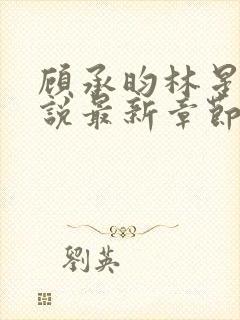 顾承昀林星
說最新章節
劉英